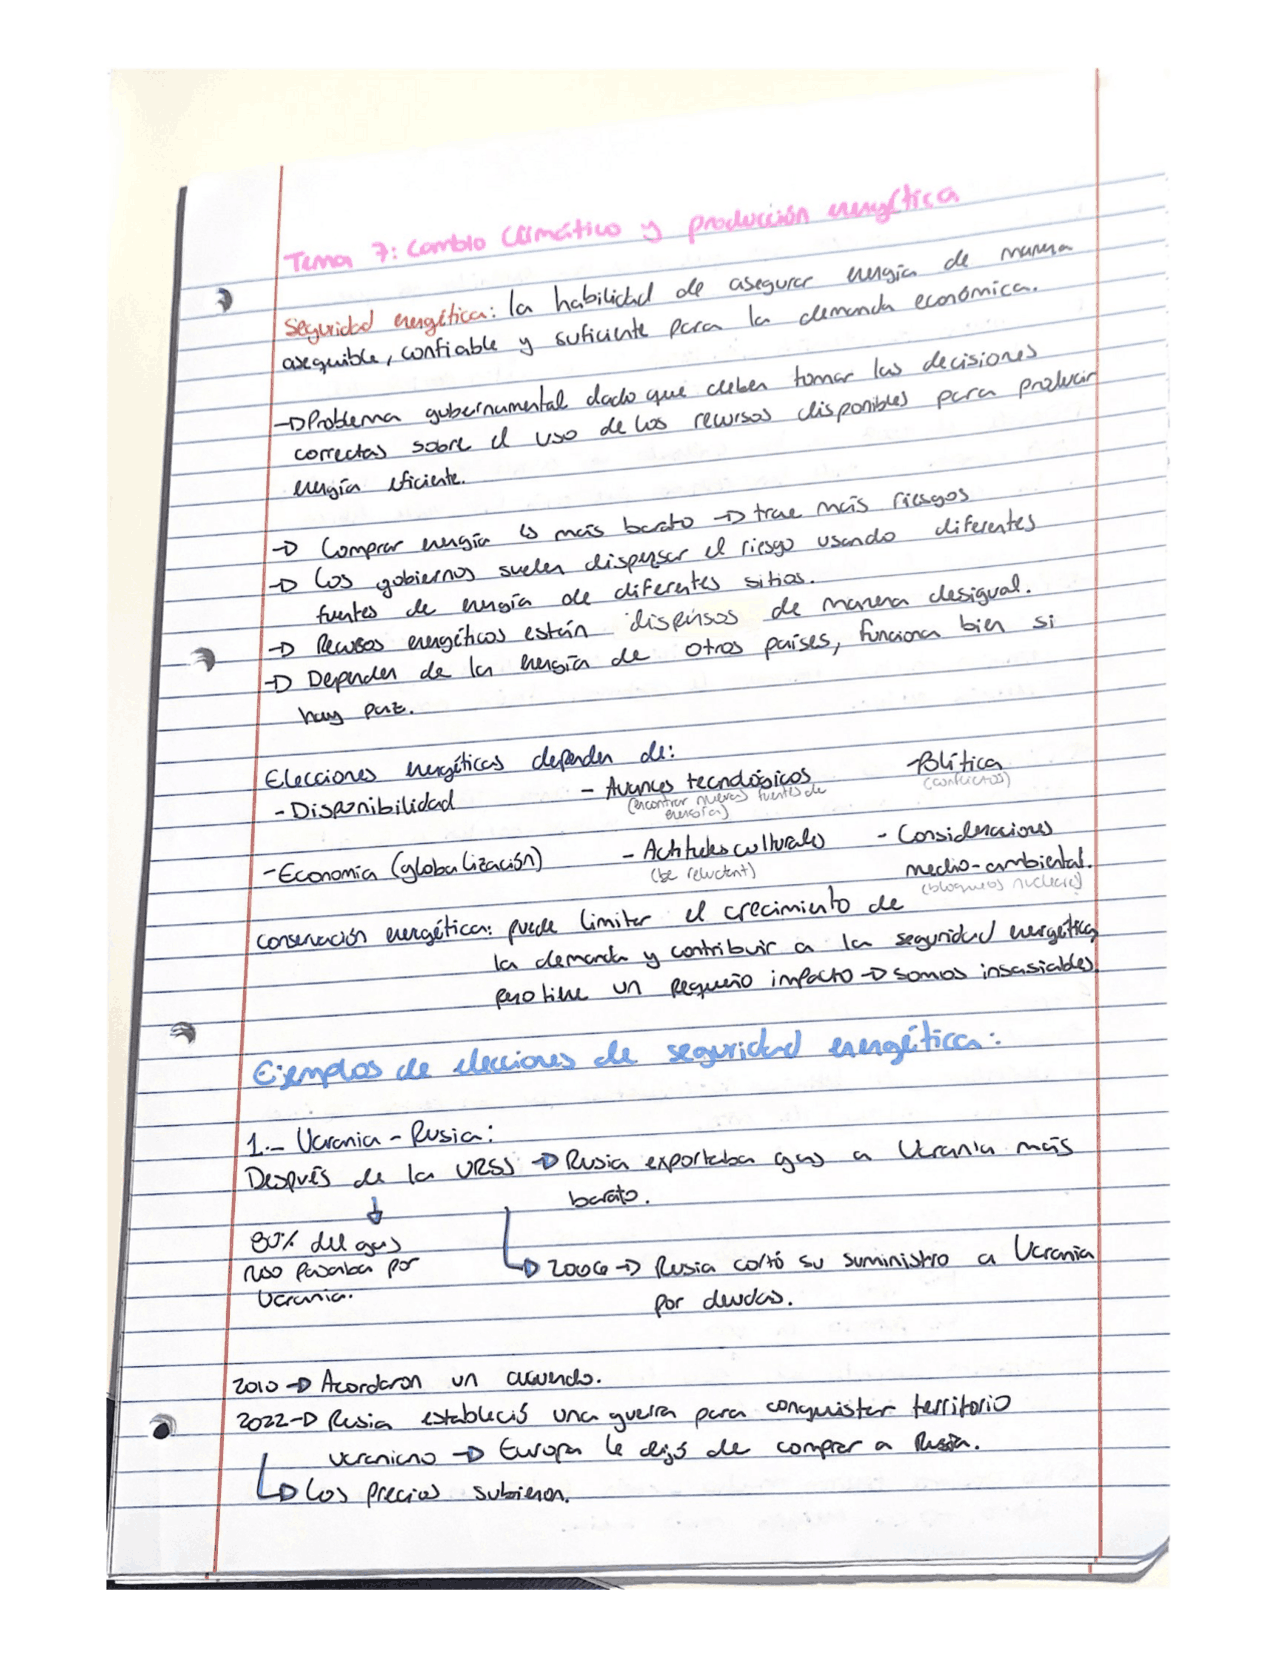 Tema 7: Cambio climático y producción energética
Seguridad energética: la habilidad de asegurar energía de manera
asequible, confiable y suficiente para la demanda económica.
→ Problema gubernamental dado que deben tomar las decisiones
correctas sobre el uso de los recursos disponibles para producir
energía eficiente.
→ Comprar energía es más barato → trae más riesgos
→ Los gobiernos suelen dispersar el riesgo usando diferentes
fuentes de energía de diferentes sitios.
→ Recursos energéticos están dispersos de manera desigual.
→ Depender de la energía de otros países, funciona bien si
hay paz.
Elecciones energéticas dependen de:
- Disponibilidad - Avances tecnológicos - Política
(encontrar nuevas fuentes de (conflictos)
energía)
- Economía (globalización) - Actitudes culturales - Consideraciones
(be reluctant) medio-ambiental.
(bloqueos nucleares)
Conservación energética: puede limitar el crecimiento de
la demanda y contribuir a la seguridad energética,
pero tiene un pequeño impacto → somos insasiables.
Ejemplos de elecciones de seguridad energética:
1.- Ucrania - Rusia:
Después de la URSS → Rusia exportaba gas a Ucrania más
barato.
80% del gas
ruso pasaba por
Ucrania.
↳ 2006 → Rusia cortó su suministro a Ucrania
por deudas.
2010 → Acordaron un acuerdo.
2022 → Rusia estableció una guerra para conquistar territorio
ucraniano → Europa le dejó de comprar a Rusia.
↳ Los precios subieron.